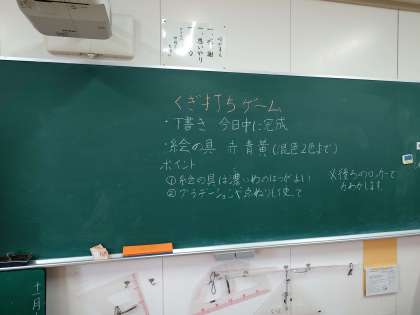 くぎ打ちゲーム
・下書き 今日中に完成
・絵の具 赤青黄(混色2色まで)
ポイント
①絵の具は濃いめのほうがよい
②グラデーションや点ぬりも使って
※後ろのロッカーで
かわかします。
一、感謝
一、思いやり
十一月